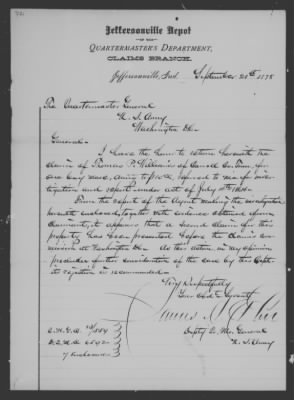 Jeffersonville Depot
OF THE
QUARTERMASTER'S DEPARTMENT,
CLAIMS BRANCH.
Jeffersonville, Ind. September 1878
The Quartermaster General
U. S. Army
Washington D.C.
General:
I have the honor to return herewith the
claim of Thomas P. Williams of Carroll Co. Tenn, for
one bay mare, amtg to referred to me for inves-
tigation and report under act of July 4th 1864.
From the report of the Agent making the investigation
herewith enclosed, together with evidence obtained from
Claimant, it appears that a second claim for this
property has been presented before the Claims Com-
mission at Washington D.C. As this action, in my opinion
precludes further consideration of the case by this Dept
its rejection is recommended.
Very Respectfully
Your Obdt. Servant
Depty Q. Mr. General
U. S. Army
7 Enclosures